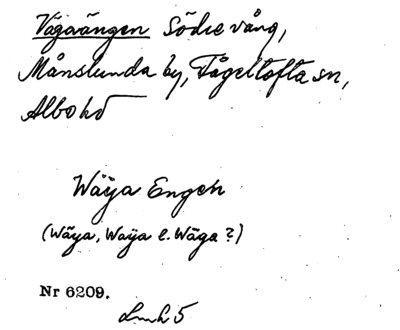 Vägaängen Södre vång,
Månslunda by, Fågeltofta sn,
Albo hd
Wäÿa Engen
(Wäya, Waÿa l. Wäga?)
Nr 6209.